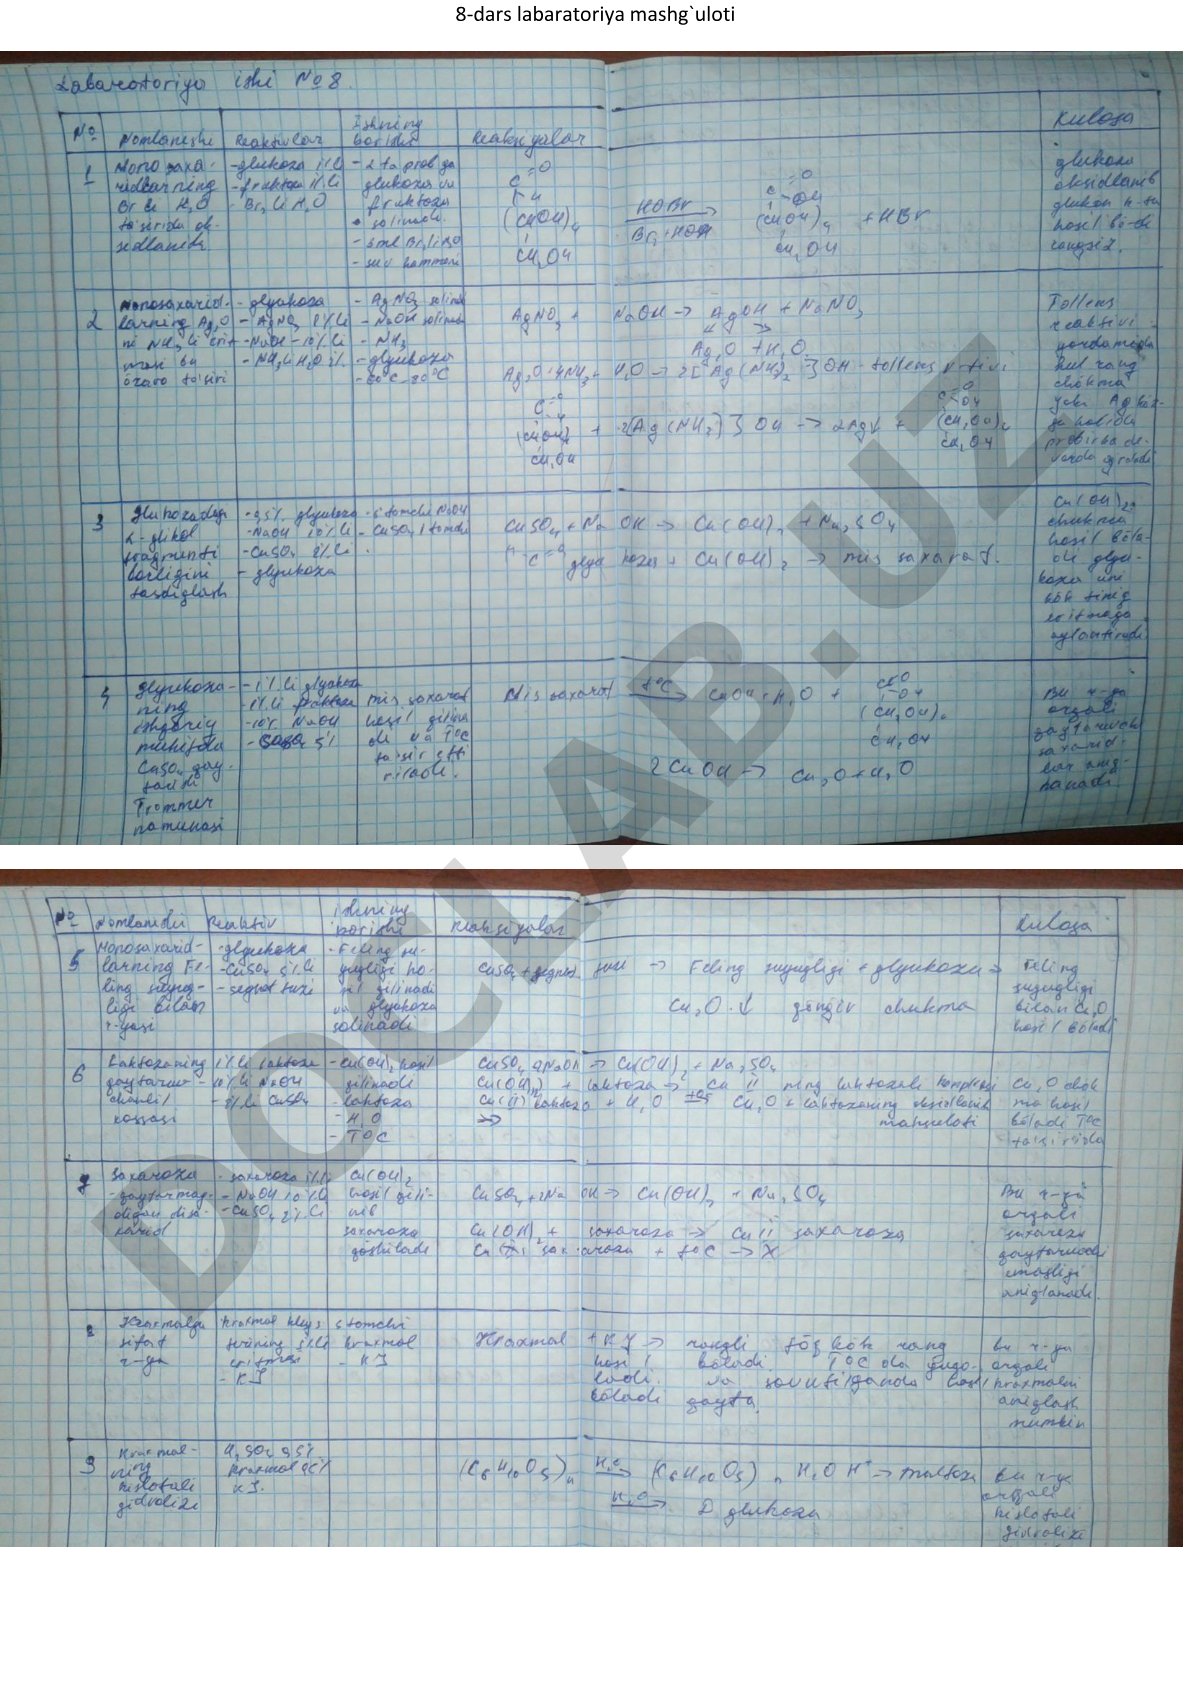 8-dars labaratoriya mashg`uloti
Labaratoriya ishi № 8.
№ Nomlanishi Reaktivlar Ishning borishi Reaksiyalar Xulosa
1
Monosaxa-
ridlarning
Br li H2O
ta'sirida ok-
sidlanishi
-glukoza 1% li
-fruktoza 1% li
- Br2 li H2O
- 2 ta probga
glukoza va
fruktoza
solinadi.
C=O
(CHOH)4
CH2OH
HOBr
Br2+HOH
C=O
OH
(CHOH)4 + HBr
CH2OH
glukoza
oksidlanib
glukon k-ta
hosil bö-di
rangsiz.
2
Monosaxarid-
larning Ag2O
ni NH3 li erit-
masi bn
özaro ta'siri
- glyukoza
- AgNO3 2% li
- NaOH - 10% li
- AgNO3 solinadi
- NaOH solinadi
- NH3
- glyukoza
- 60°C-80°C
AgNO3 + NaOH → AgOH + NaNO3
Ag2O + H2O
Ag2O + 4NH3 + H2O → 2[Ag(NH3)2]OH - tollens r-tivi
+ 2[Ag(NH3)2]OH → 2Ag↓ +
CH2OH
Tollens
reaktivi
yordamida
chökma
yoki Ag köz-
gu holida
probirka de-
vorida ajraladi
3
Glukozadagi
2-glikol
fragmenti
borligini
tasdiqlash
- 0,5% glyukoza
- NaOH 10% li
- CuSO4 2% li
- glyukoza
- 5 tomchi NaOH
- CuSO4 1 tomchi
CuSO4 + NaOH → Cu(OH)2 + Na2SO4
glyukoza + Cu(OH)2 → mis saxarat.
Cu(OH)2
chukma
hosil böla-
di glyu-
koza uni
kök tiniq
eritmaga
aylantiradi
4
Glyukoza-
ning
ishqoriy
muhitda
CuSO4 qay-
tarishi
Trommer
namunasi
- 1% li glyukoza
- 1% li fruktoza
- 10% NaOH
- CuSO4 5%
mis saxarat
hosil qilina
di va T°C
ta'sir etti
riladi.
Mis saxarat t°C → CuOH + H2O +
CH2OH
2CuOH → Cu2O + H2O
Bu r-ya
orqali
qaytaruvchi
saxarid-
lar aniq-
lanadi.
№ Nomlanishi Reaktiv Ishning borishi Reaksiyalar Xulosa
5
Monosaxarid-
larning Fe-
ling suyuq-
ligi bilan
r-yasi
-glyukoza
-CuSO4 5% li
-segnet tuzi
- Feling su-
yuqligi ho-
sil qilinadi
va glyukoza
solinadi
CuSO4 + segnet tuzi → Feling suyuqligi + glyukoza →
Cu2O ↓ qöngir chukma
Feling
suyuqligi
bilan Cu2O
hosil böladi
6
Laktozaning
qaytaruv-
chanlik
xossasi
1% li laktoza
- 10% li NaOH
- 2% li CuSO4
- Cu(OH)2 hosil
qilinadi
- laktoza
- H2O
- T°C
CuSO4 + 2NaOH → Cu(OH)2 + Na2SO4
Cu(OH)2 + laktoza → Cu II ning laktozali kompleksi
Cu(II) laktoza + H2O t°C → Cu2O + laktozaning oksidlanish
mahsuloti
Cu2O chök
ma hosil
böladi T°C
ta'sirida
7
Saxaroza
-qaytarmay-
digan disa-
xarid
- saxaroza 1% li
- NaOH 10% li
- CuSO4 2% li
Cu(OH)2
hosil qili-
nib
saxaroza
qöshiladi
CuSO4 + 2NaOH → Cu(OH)2 + Na2SO4
Cu(OH)2 + saxaroza → Cu II saxaroza
Cu(II) saxaroza + t°C → X
Bu r-ya
orqali
saxaroza
qaytaruvchi
emasligi
aniqlanadi.
8
Kraxmalga
sifat
r-ya
- KJ
5 tomchi
kraxmal
- KJ
Kraxmal + KJ → rangli töq kök rang
hosil böladi. T°C da yuqo-
ladi. va sovutilganda hosil
böladi qayta.
bu r-ya
orqali
kraxmalni
aniqlash
mumkin
9
Kraxmal-
ning
kislotali
gidrolizi
H2SO4 0,5%
KJ.
(C6H10O5)n H2O → (C6H10O5)n H2O H+ → maltoza
H2O → D glukoza
Bu r-ya
orqali
kislotali
gidrolizi
DOCLAB.UZ